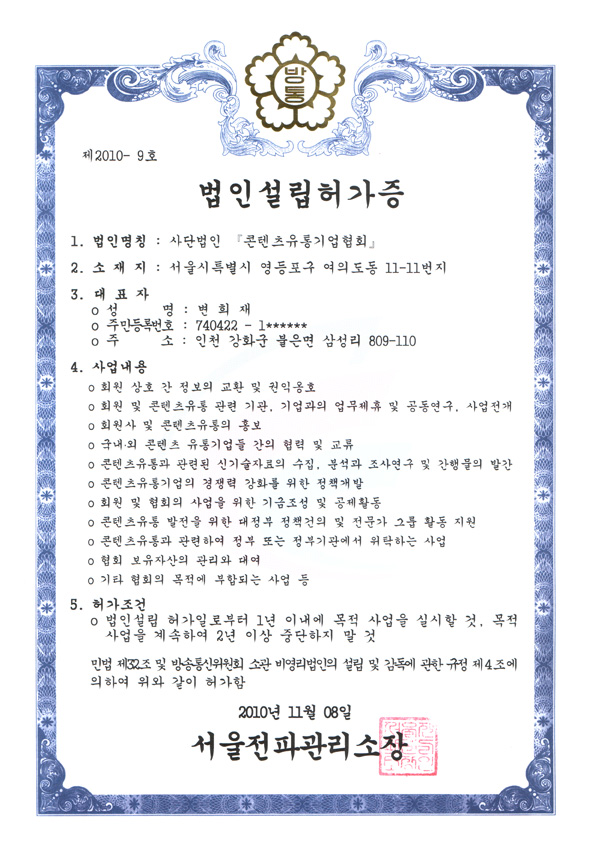 방
통
제2010- 9호
법인설립허가증
1. 법인명칭 : 사단법인 『콘텐츠유통기업협회』
2. 소 재 지 : 서울시특별시 영등포구 여의도동 11-11번지
3. 대 표 자
o 성 명 : 변 희 재
o 주민등록번호 : 740422 - 1******
o 주 소 : 인천 강화군 불은면 삼성리 809-110
4. 사업내용
o 회원 상호 간 정보의 교환 및 권익옹호
o 회원 및 콘텐츠유통 관련 기관, 기업과의 업무제휴 및 공동연구, 사업전개
o 회원사 및 콘텐츠유통의 홍보
o 국내·외 콘텐츠 유통기업들 간의 협력 및 교류
o 콘텐츠유통과 관련된 신기술자료의 수집, 분석과 조사연구 및 간행물의 발간
o 콘텐츠유통기업의 경쟁력 강화를 위한 정책개발
o 회원 및 협회의 사업을 위한 기금조성 및 공제활동
o 콘텐츠유통 발전을 위한 대정부 정책건의 및 전문가 그룹 활동 지원
o 콘텐츠유통과 관련하여 정부 또는 정부기관에서 위탁하는 사업
o 협회 보유자산의 관리와 대여
o 기타 협회의 목적에 부합되는 사업 등
5. 허가조건
o 법인설립 허가일로부터 1년 이내에 목적 사업을 실시할 것, 목적
사업을 계속하여 2년 이상 중단하지 말 것
민법 제32조 및 방송통신위원회 소관 비영리법인의 설립 및 감독에 관한 규정 제4조에
의하여 위와 같이 허가함
2010년 11월 08일
서울전파관리소장